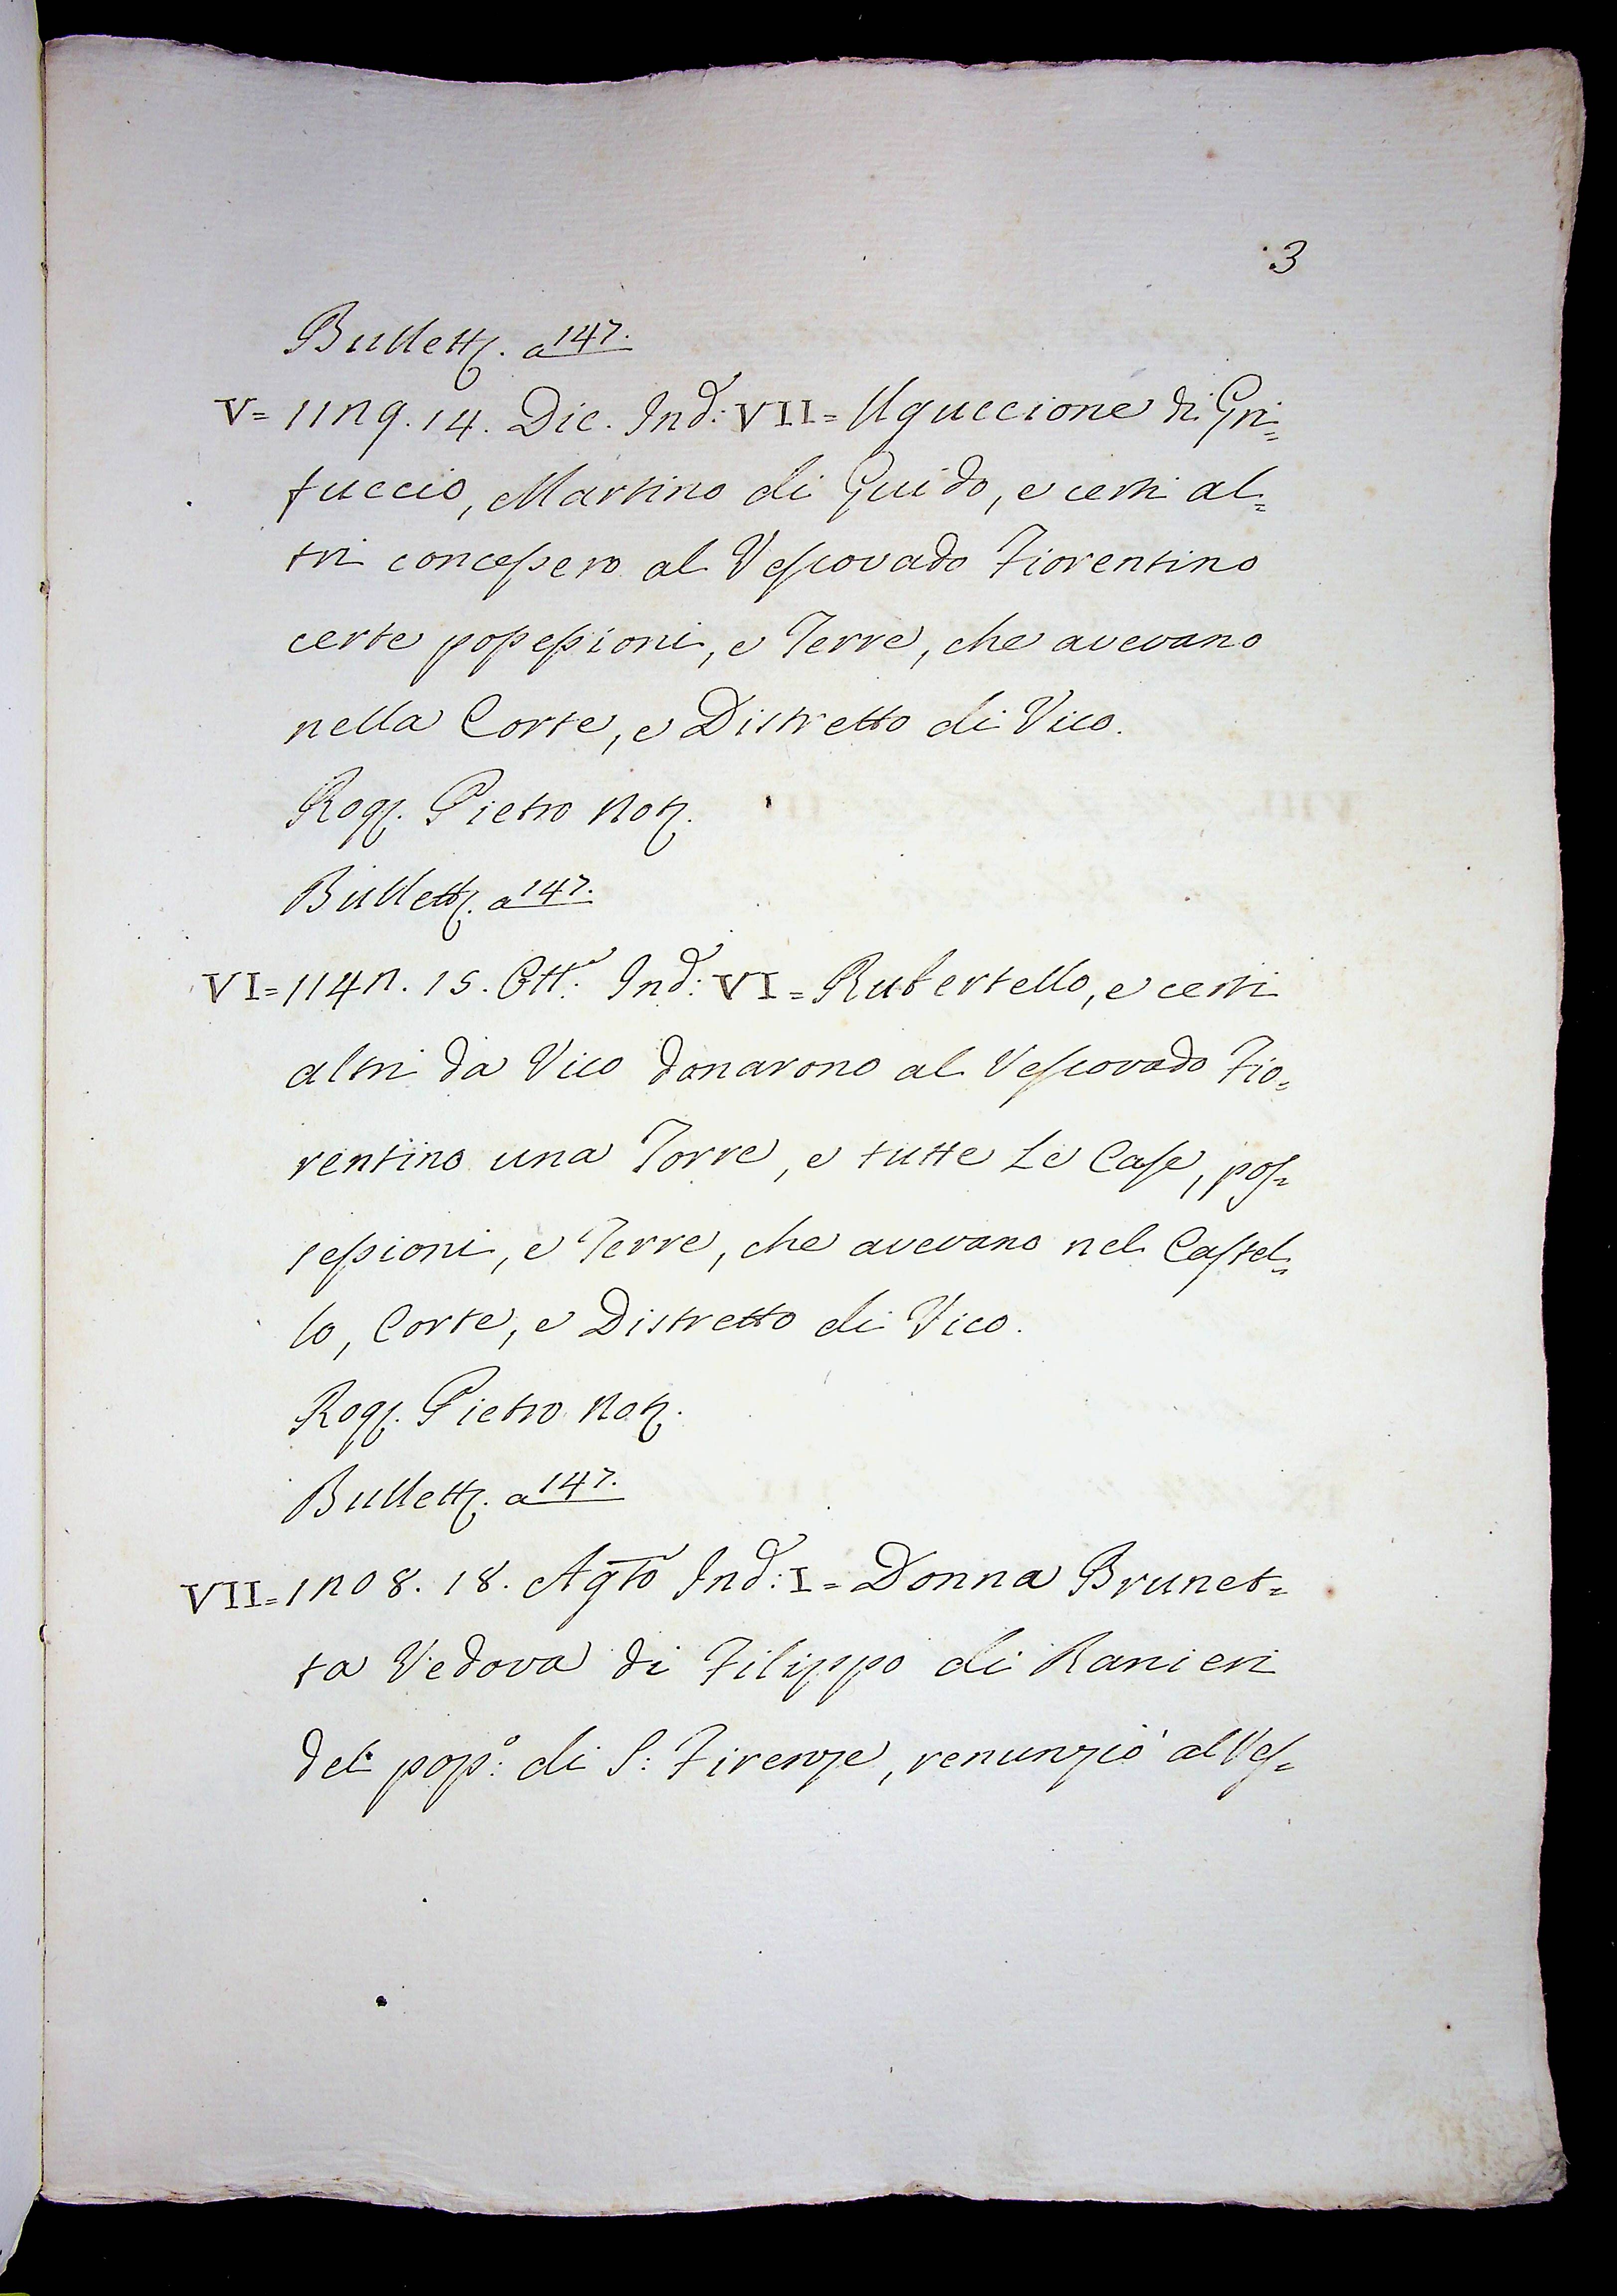 3
Bullett. a 147.
V = 1129. 14. Dic. Ind: VII = Uguccione di Gri=
fuccio, Martino di Guido, e certi al=
tri concessero al Vescovado Fiorentino
certe possessioni, e Terre, che avevano
nella Corte, e Distretto di Vico.
Rog. Pietro Not.
Bullett. a 147.
VI = 1142. 15. Ott.e Ind: VI = Rubertello, e certi
altri da Vico donarono al Vescovado Fio=
rentino una Torre, e tutte le Case, pos=
sessioni, e Terre, che avevano nel Castel=
lo, Corte, e Distretto di Vico.
Rog. Pietro Not.
Bullett. a 147.
VII = 1208. 18. Agto Ind: I = Donna Brunet=
ta Vedova di Filippo di Ranieri
del pop:o di S: Firenze, renunziò al Ves=